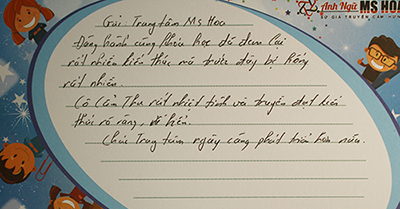 Anh Ngữ MS HOA
SỨ GIẢ TRUYỀN CẢM HỨNG
Gửi: Trung tâm Ms Hoa
Đồng hành cùng khóa học đã đem lại
rất nhiều kiến thức mà trước đây bị hổng
rất nhiều.
Cô Cẩm Thu rất nhiệt tình và truyền đạt kiến
thức rõ ràng, dễ hiểu.
Chúc Trung tâm ngày càng phát triển hơn nữa.